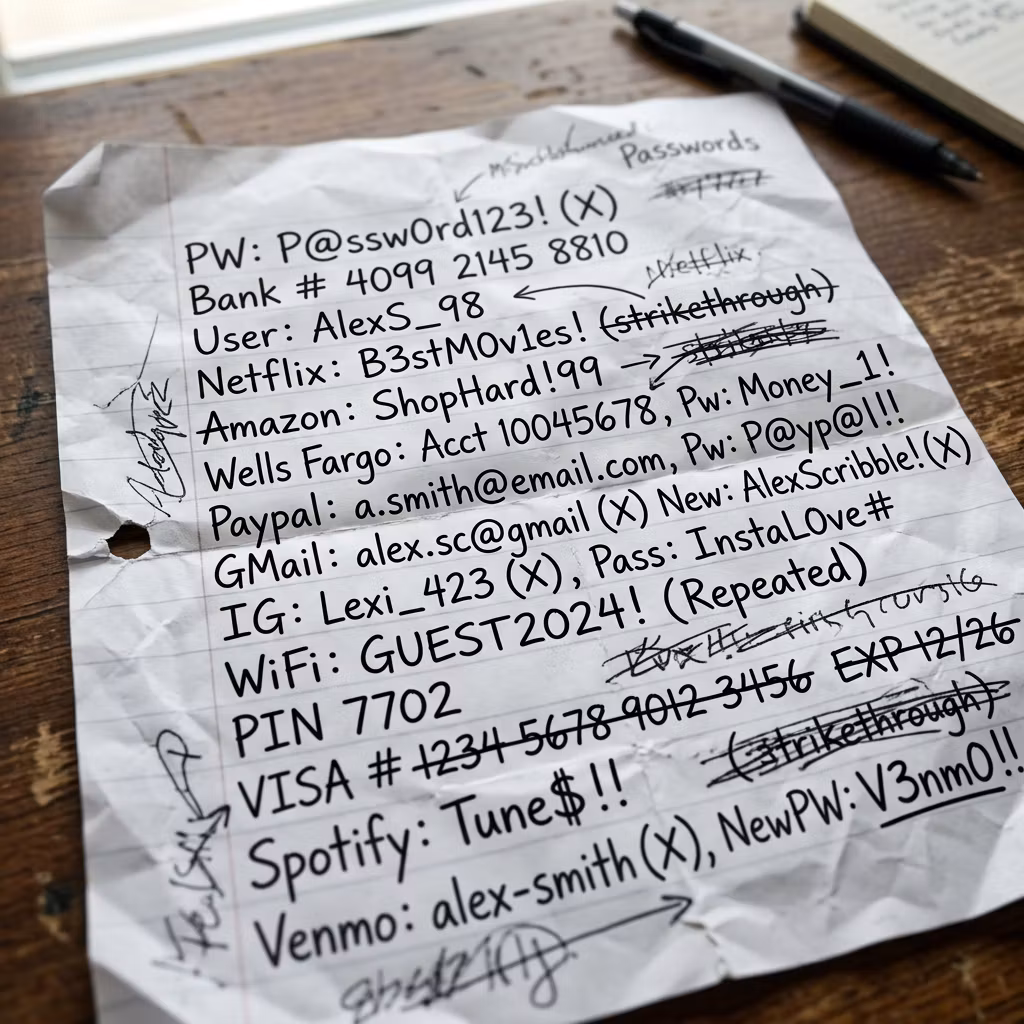 Passwords
PW: P@ssw0rd123! (X)
Bank # 4099 2145 8810
Netflix.
User: AlexS_98
Netflix: B3stM0v1es! (strikethrough)
Amazon: ShopHard!99
Wells Fargo: Acct 10045678, Pw: Money_1!
Paypal: a.smith@email.com, Pw: P@yp@l!!
GMail: alex.sc@gmail (X) New: AlexScribble! (X)
IG: Lexi_423 (X), Pass: InstaL0ve#
WiFi: GUEST2024! (Repeated)
PIN 7702
VISA # 1234 5678 9012 3456 EXP 12/26
(strikethrough)
Spotify: Tune$!!
Venmo: alex-smith (X), NewPW: V3nm0!!